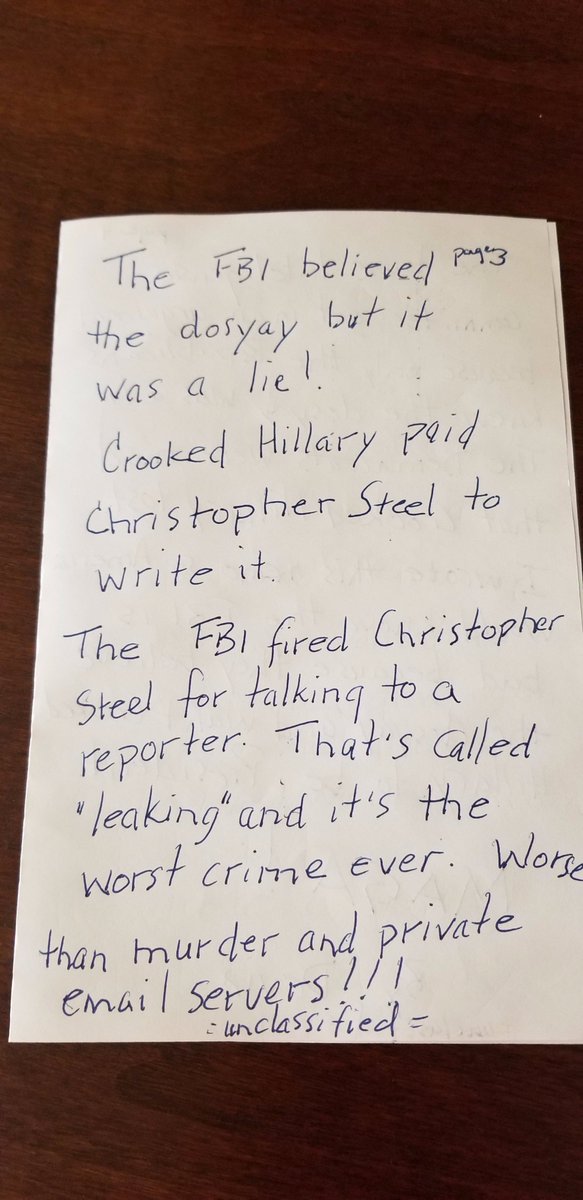 The FBI believed page 3
the dosyay but it
was a lie!.
Crooked Hillary paid
Christopher Steel to
write it.
The FBI fired Christopher
Steel for talking to a
reporter. That's called
"leaking" and it's the
worst crime ever. Worse
than murder and private
email servers!!!
=unclassified=